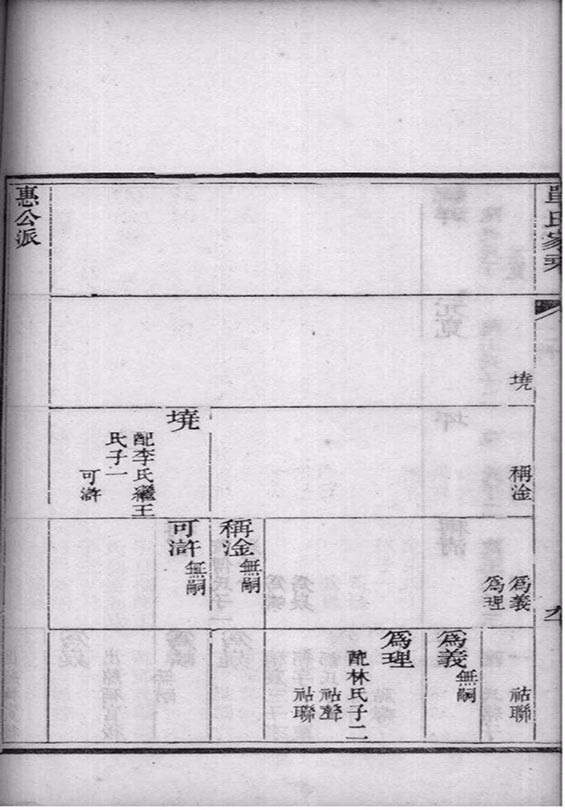 單氏家乘
九
墝
稱淦
爲義
爲理
祜聯
爲義
無嗣
爲理
配林氏子二
祜聲
祜聯
稱淦
無嗣
墝
配李氏繼王
氏子一
可滸
可滸
無嗣
惠公派